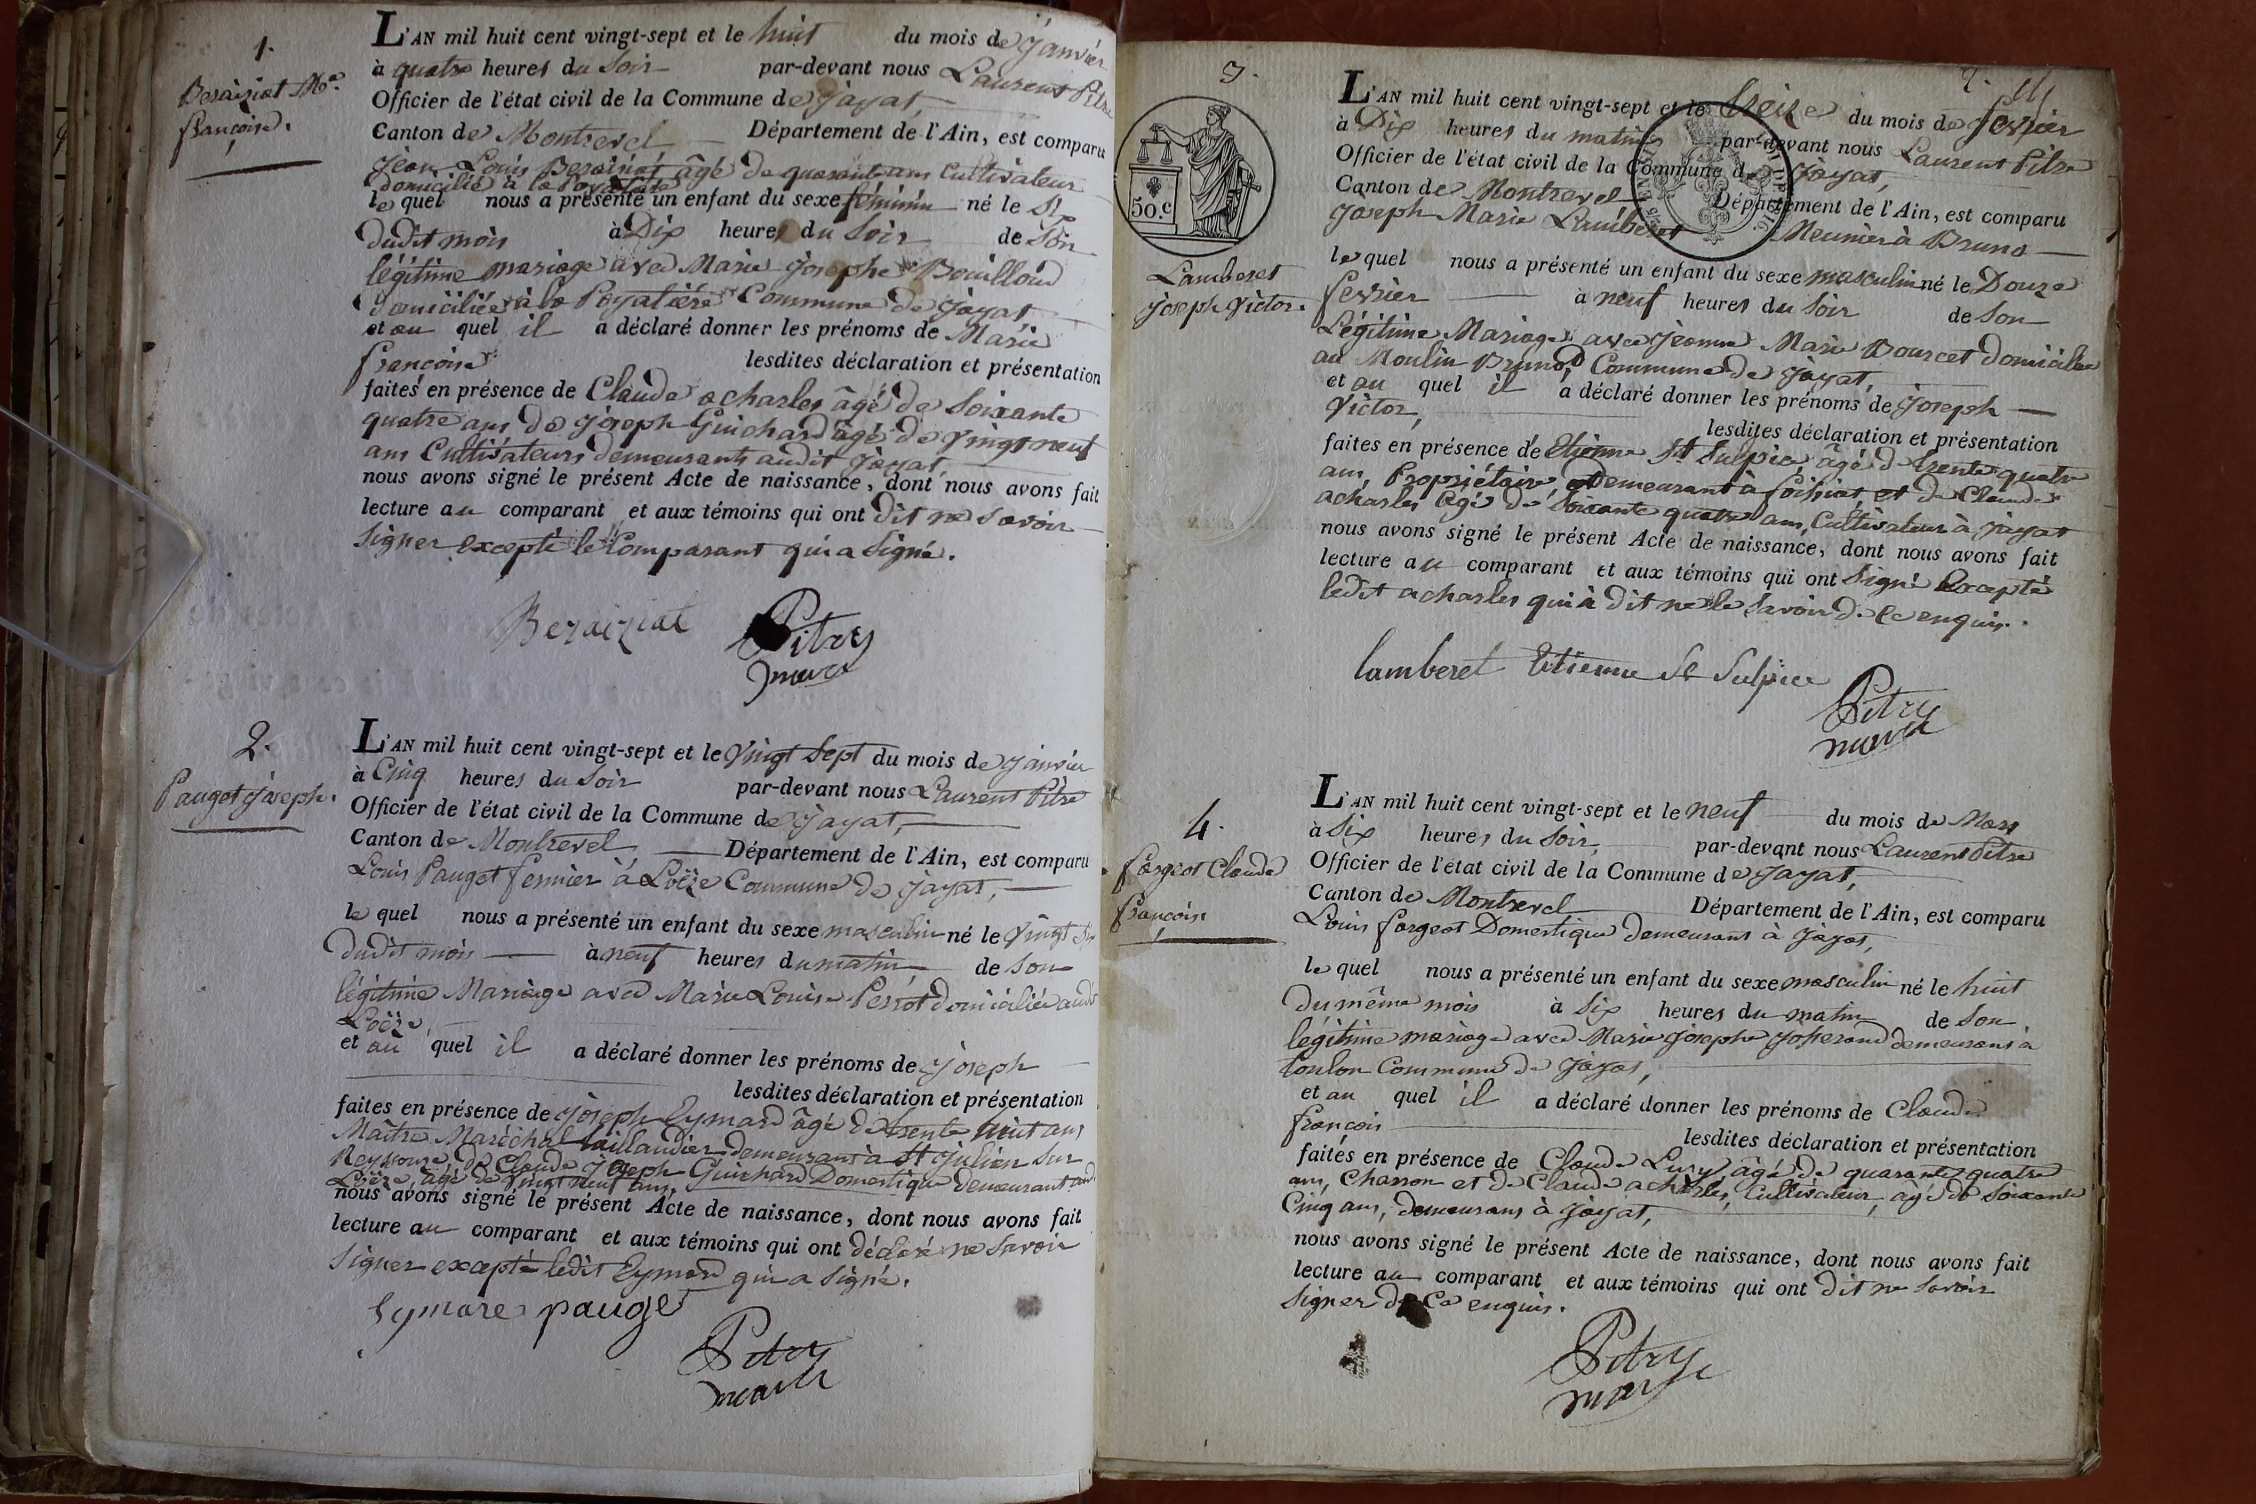 1.
Beraiziat Me.
françoise.
L'AN mil huit cent vingt-sept et le huit du mois de janvier
à quatre heures du soir par-devant nous Laurent Pitre
Officier de l'état civil de la Commune de Jayat,
Canton de Montrevel Département de l'Ain, est comparu
Jean Louis Beraiziat, âgé de quarante ans cultivateur
domicilié à la
le quel nous a présenté un enfant du sexe féminin né le six
dudit mois à Dix heures du soir de son
légitime mariage avec Marie josephe Bouilloud
domiciliée à la Poyatière Commune de Jayat
et au quel il a déclaré donner les prénoms de Marie
françoise lesdites déclaration et présentation
faites en présence de Claude acharles âgé de soixante
quatre ans de joseph Guichard âgé de vingt neuf
ans Cultivateurs demeurants audit Jayat
nous avons signé le présent Acte de naissance, dont nous avons fait
lecture au comparant et aux témoins qui ont dit ne savoir
signer excepté le Comparant qui a signé.
Beraiziat Pitre
maire
2.
Pauget joseph.
L'AN mil huit cent vingt-sept et le vingt sept du mois de janvier
à Cinq heures du soir par-devant nous Laurent Pitre
Officier de l'état civil de la Commune de Jayat,
Canton de Montrevel Département de l'Ain, est comparu
Louis Pauget fermier à Loëze Commune de Jayat,
le quel nous a présenté un enfant du sexe masculin né le vingt six
dudit mois à neuf heures du matin de son
légitime Mariage avec Marie Louise Perrot domiciliée audit
Loëze,
et au quel il a déclaré donner les prénoms de joseph
lesdites déclaration et présentation
faites en présence de joseph Eymard âgé de trente huit ans
Maître Maréchal taillandier demeurant à St julien sur
Reyssouze, de Claude joseph Guichard Domestique demeurant aud
Loëze, âgé de vingt neuf ans,
nous avons signé le présent Acte de naissance, dont nous avons fait
lecture au comparant et aux témoins qui ont déclaré ne savoir
signer excepté ledit Eymard qui a signé.
Eymard pauget
Pitre
maire
3.
50.c
Lamberet
joseph Victor.
L'AN mil huit cent vingt-sept et le treize du mois de fevrier
à Dix heures du matin par-devant nous Laurent Pitre
Officier de l'état civil de la Commune de Jayat,
Canton de Montrevel Département de l'Ain, est comparu
joseph Marie Lamberet Meunier à Bruno
le quel nous a présenté un enfant du sexe masculin né le Douze
fevrier à neuf heures du soir de son
Légitime Mariage avec Jeanne Marie Bourcet domiciliée
au Moulin Bruno, Commune de Jayat,
et au quel il a déclaré donner les prénoms de joseph
Victor, lesdites déclaration et présentation
faites en présence de Etienne St Sulpice, âgé de trente quatre
ans, Propriétaire, demeurant à foissiat, et de Claude
acharles âgé de soixante quatre ans, Cultivateur à Jayat
nous avons signé le présent Acte de naissance, dont nous avons fait
lecture au comparant et aux témoins qui ont signé Excepté
ledit acharles qui à dit ne le savoir de ce enquis.
lamberet Etienne St Sulpice
Pitre
maire
4.
forgeot Claude
françois
L'AN mil huit cent vingt-sept et le neuf du mois de Mars
à six heures du soir, par-devant nous Laurent Pitre
Officier de l'état civil de la Commune de Jayat,
Canton de Montrevel Département de l'Ain, est comparu
Louis forgeot Domestique demeurant à Jayat,
le quel nous a présenté un enfant du sexe masculin né le huit
du même mois à six heures du matin de son
légitime mariage avec Marie josephe josserand demeurant à
toulon Commune de Jayat,
et au quel il a déclaré donner les prénoms de Claude
françois lesdites déclaration et présentation
faites en présence de Claude Lury âgé de quarante quatre
ans, Charron et de Claude acharles, Cultivateur, âgé de soixante
Cinq ans, demeurans à Jayat,
nous avons signé le présent Acte de naissance, dont nous avons fait
lecture au comparant et aux témoins qui ont dit ne savoir
signer de Ce enquis.
Pitre
maire